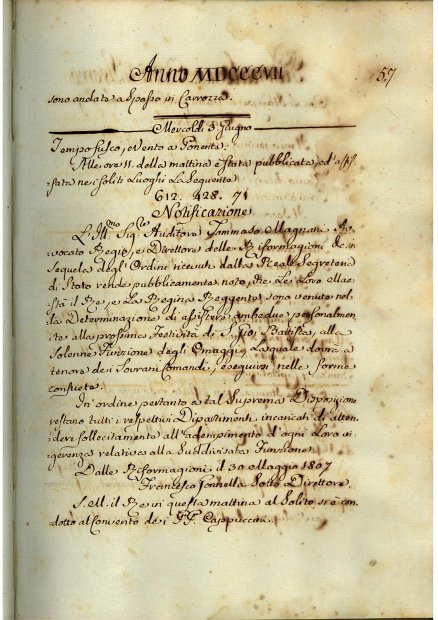 Anno MDCCCVII
57
sono andate a Spasso in Carrozza.
Mercoldì 3 Giugno
Tempo fusco, e Vento a Ponente.
Alle ore 11. della mattina è stata pubblicata, ed affis-
sata ne i soliti Luoghi La Seguente
G12. 428. 71
Notificazione
L'Ill.mo Sig.re Auditore Tommaso Magnani Av-
vocato Regio, e Direttore delle Riformagioni &c. in
Sequela degl' Ordini ricevuti dalla Reale Segreteria
di Stato rende pubblicamente noto, che Le Loro Mae-
stà il Re, e La Regina Reggente sono venute nel-
la Determinazione di assistere ambedue personalmen-
te alla prossima Festività di S. Gio. Battista, alla
Solenne Funzione degli Omaggi, La quale dovrà a
tenore dei Sovrani Comandi, eseguirsi nelle forme
consuete.
In' ordine pertanto a tal Suprema Disposizione
restano tutti i respettivi Dipartimenti incaricati di atten-
dere sollecitamente all' adempimento d'ogni Loro in-
gerenza relativa alla Suddivisata Funzione.
Dalle Riformagioni il 30 Maggio 1807
Francesco Sonnella Sotto Direttore.
S. M. il Re in questa mattina al Solito si è con-
dotto al Convento de i PP. Cappuccini.